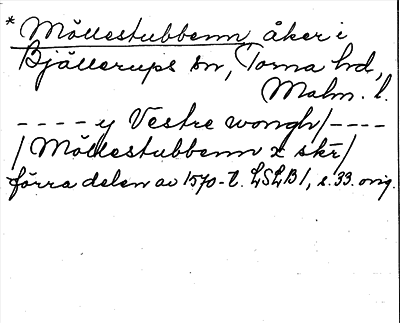 * Möllestubbenn, åker i
Bjällerups sn, Torna hd,
Malm. l.
- - - - y Vestre wongh/- - - -
/Möllestubbenn x skr/
förra delen av 1570-t. LSLB 1, s. 33. orig.